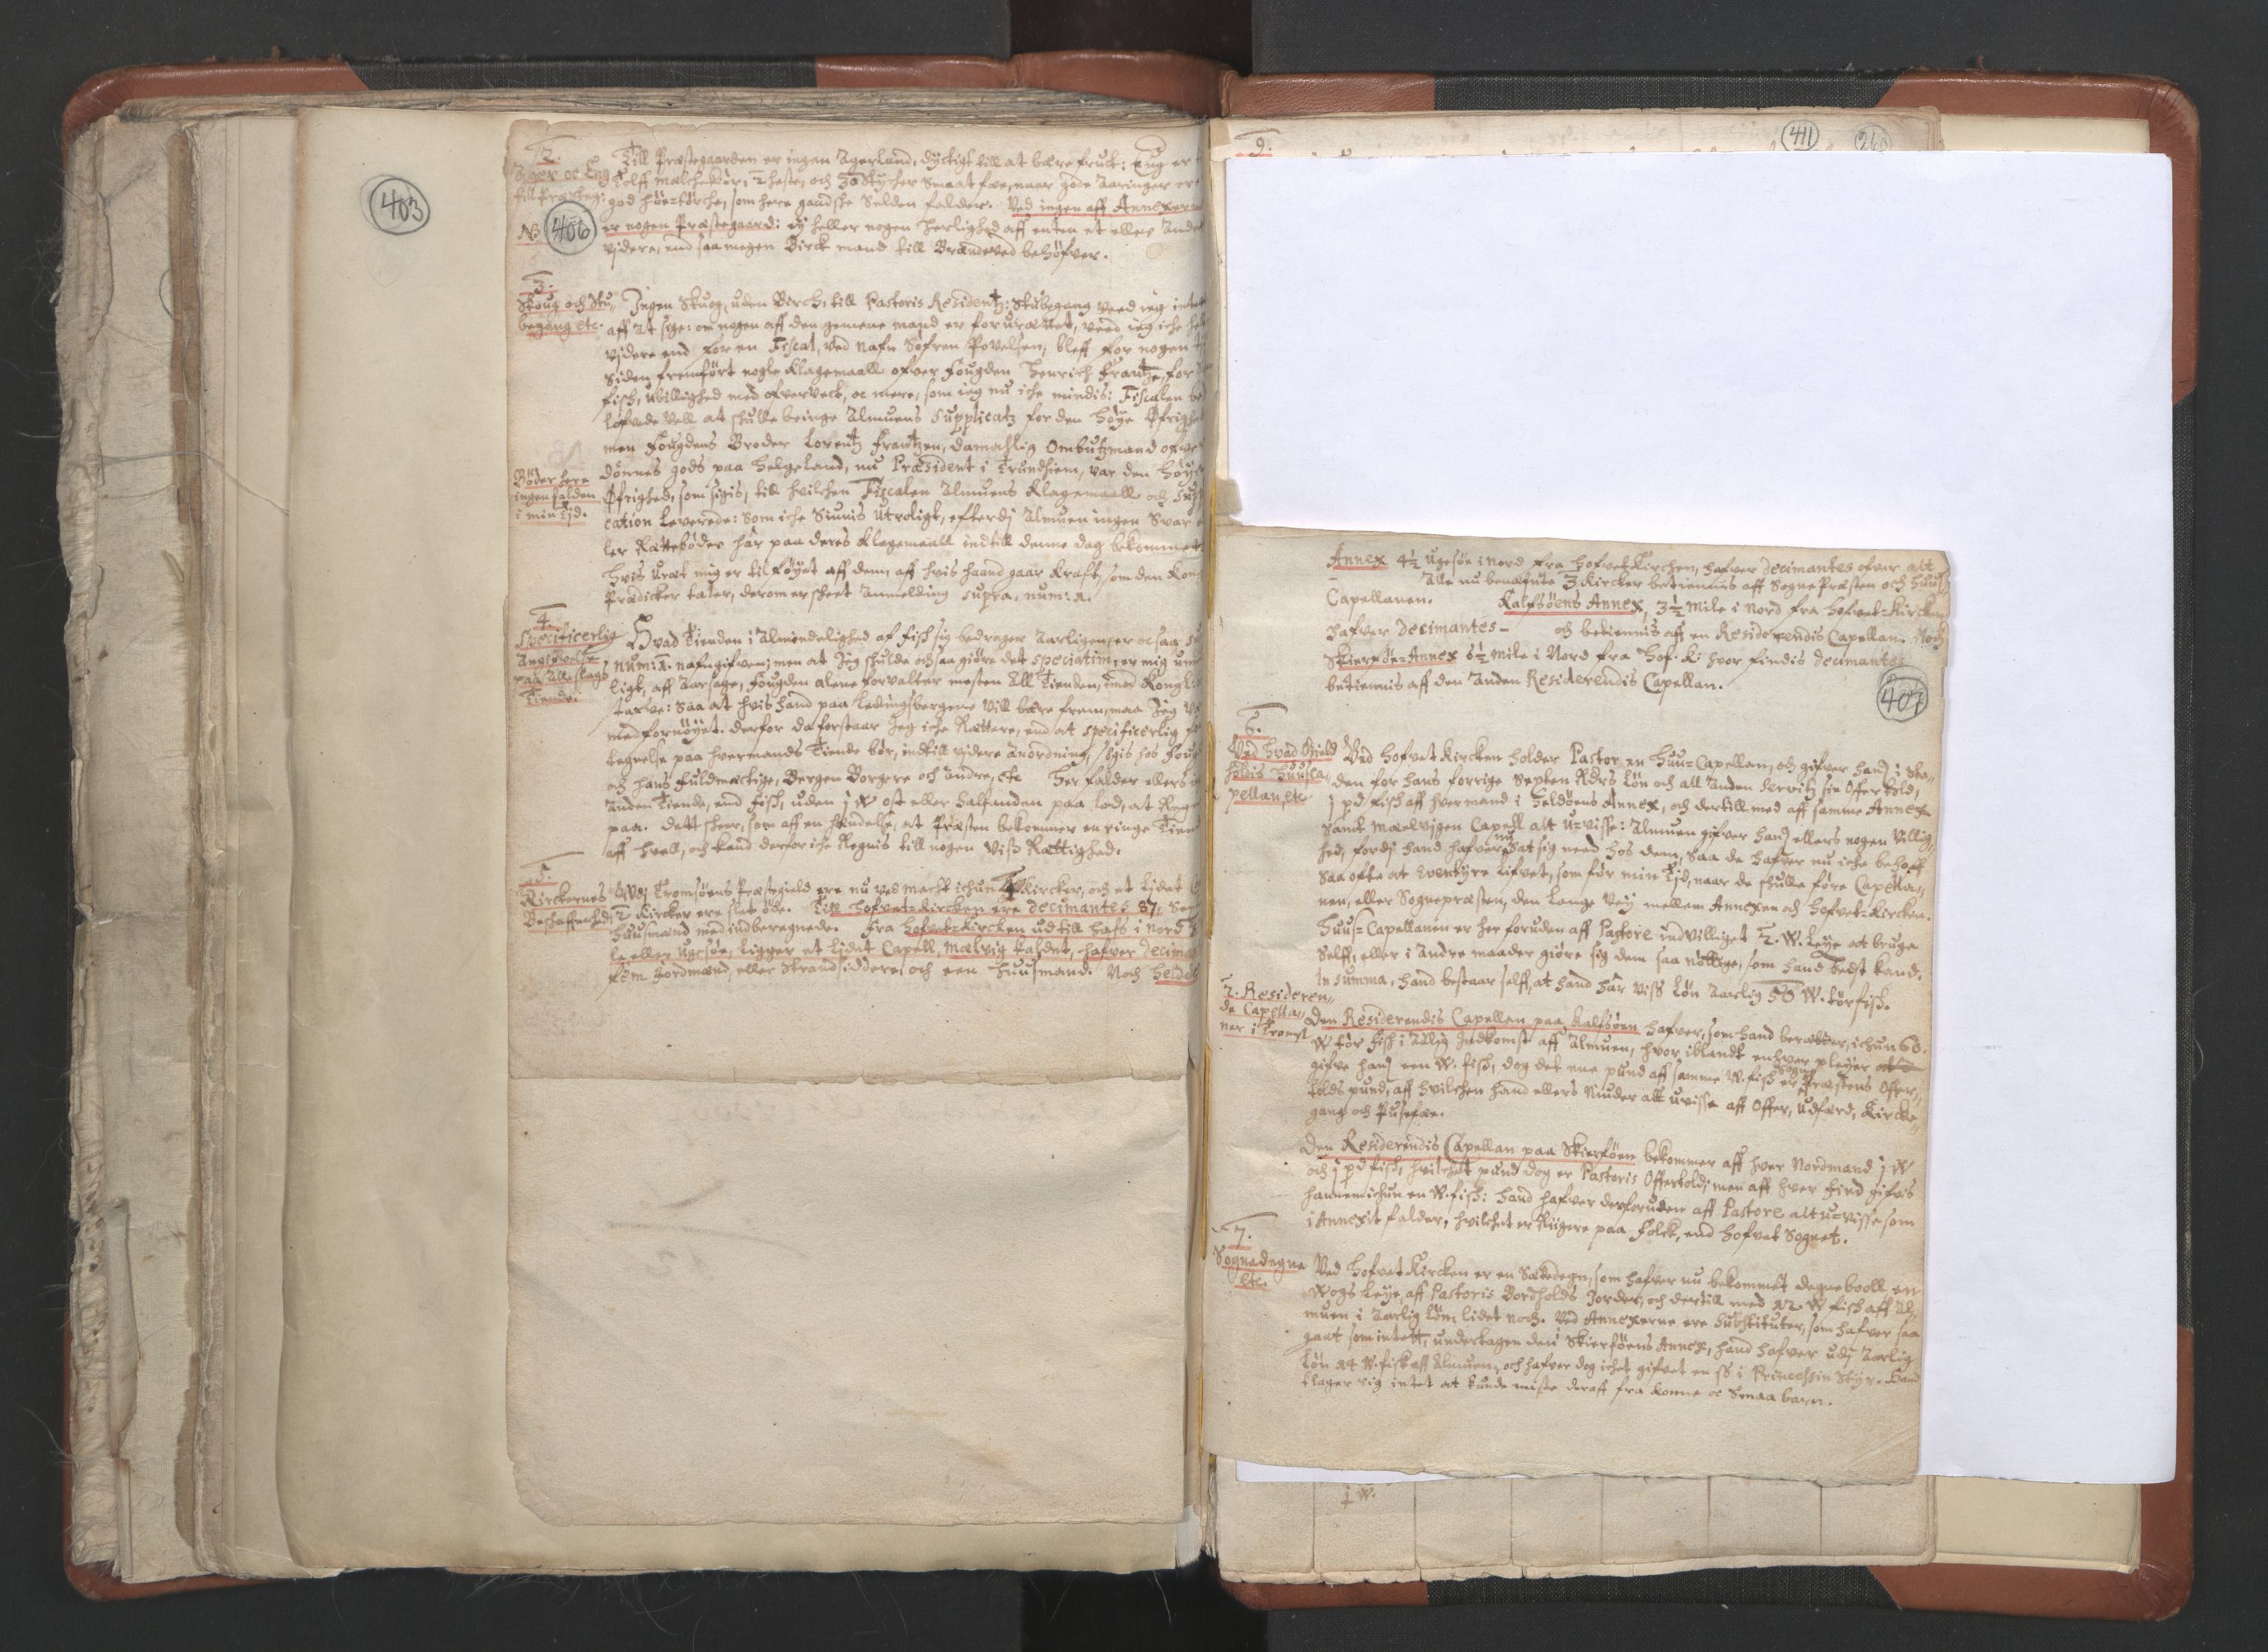 403
2.
Ager oc Eng
till Præsteg:
NB
406
Till Præstegaarden er ingen Agerland, dyctigt till at bære fruct: Eng er
Tolff malcheKiør, 2 heste, och 30 Stycher Smaat fæe, naar gode Aaringer ere
god höe-törche, som here gandsche Selden falder. Ved ingen aff Annexerne
er nogen Præstegaard: ey heller nogen herlighed aff enten et eller Andet
videre, end saa megen Birck mand till Brendeved behöfver.
3.
Skoug och Stu-
begang etc.
Ingen Skuog, uden Birch, till Pastoris Residentz: Stubegang veed ieg intet
aff at sige: om nogen aff den gemene mand er forurættet, veed ieg iche
videre end for en Fiscal, ved nafn Søfren Povelsen, bleff for nogen
Siden fremfört nogle Klagemaall ofver Fougden Henrich Frantze, for
fisch, ubillighed med ofvervect, oc mere, som ieg nu iche mindis: Fiscalen
lofvede vell at skulle bringe Almuens Supplicatz for den høye Øfrighed
men Fougdens Broder Lorentz Frantzen, damahlig Ombutzmand ofver
Dönnes gods paa Helgeland, nu Præsident i Trundhiem, var den høye
Øfrighed, som sigis, till hvilchen Fiscalen Almuens Klagemaall och Suppli
cation leverede: Som iche Siunis utroligt, efterdj Almuen ingen Svar
ler Rættebøder har paa deres Klagemaall indtill denne dag bekommet
hvis uræt mig er tilföyet aff dem, aff hvis haand gaar Krafft, som den Kong
Prædicker taler, derom er skeet Anmelding supra, num: 1.
Böder here
ingen falden
i min Tjd.
4.
Specificerlig
Angifvelse
paa Alleslags
Tiende.
Hvad Tienden i Almindelighed af fisch sig bedrager Aarligen, er ocsaa
num: 1. nafngifven; men at Jeg skulde ochsaa giöre det speciatim, er mig umu
ligt, aff Aarsage, Fougden alene forvalter mesten All Tienden, med Kongl:
tarve: Saa at hvis hand paa ledingsbergene vill bære frem, maa Jeg
med fornöyet. Derfor da forstaar Jeg iche Rættere, end at specificerlig
tegnelse paa hvermands Tiende bör, indtill videre Anordning, sögis hos Foug
och hans fuldmectige, Bergen Borgere och Andre, etc Her falder ellers
Anden Tiende, end fisch, uden j W ost eller halfanden paa lod, at Regne
paa. Dett skeer, som aff en hændelse, at Præsten bekommer en ringe Tiend
aff hvall, och kand derfor iche Regnis till nogen viss Rættighed.
5.
Kirckernes
Beschaffenhed
Udj Tromsöens Præstegield ere nu ved macht ichun 4 Kircker, och et lidet
2 Kircker ere slet öde. Till Hofvet-Kircken ere decimantes 87,
huusmænd med indberegnede. Fra Hofvet-Kircken udtill hafs i Nord
le eller Ugesöe, ligger et lidet Capell, Mælvig kaldet, hafver Decima
fem Jordmænd, eller Strandsiddere, och een huusmand. Noch Heldö
9.
411
26
Annex 4½ Ugesöe i Nord fra Hofvet Kirchen, hafver Decimantes ofver alt
- Alle nu benæfnte 3 Kircker betiennis aff SognePræsten och Huus-
Capellanen. Kalfsöens Annex, 3½ Mile i Nord fra Hofvet-Kircken
hafver Decimantes - och betiennis aff en Residerendis Capellan. Noch
Skierföe-Annex 6½ Mile i Nord fra Hof. K: hvor findis Decimantes
betiennis aff den Anden Residerendis Capellan.
407
6.
Ved hvad Gield
holdis Huusca-
pellan, etc
Ved Hofvet Kircken holder Pastor en Huus-Capellan, och gifver hand i Sta-
den for hans forrige Septen Rdrs Lön och all Anden Servitz sin Offer told,
j pd fisch aff hver mand i Heldöens Annex, och dertill med aff samme Annex
Samt Mælvigen Capell alt u-visse: Almuen gifver hand ellers nogen Villig-
hed, fordj hand hafver nu Sat sig need hos dem, Saa de hafver nu iche behoff
Saa ofte at eventyre lifvet, som för min Tjd, naar de skulle före Capella-
nen, eller Sognepræsten, den lange vej mellem Annexen och Hofvet-Kircken.
Huus-Capellanen er her foruden aff Pastore indvilliget 2. W. Leye at bruge
Self, eller i Andre maader giöre sig dem saa nöttige, som hand bedst kand.
In summa, hand bestaar self, at hand har viss Lön Aarlig 56 W. törfisk.
2. Residerend-
de Capella-
ner i Tromsö
Den Residerendis Capellan paa Kalfsöen hafver, som hand beretter, ichun 60.
W för fisch i Aarlig Indkomst aff Almuen, hvor iblandt enhver pleyer
gifve hand een W. fisch, dog det ene pund aff samme W. fisch er Sogne Præstens Offer-
tolds pund, aff hvilchen hand ellers Niuder alt uvisse aff Offer, Udfærd, Kircke-
gang och Pusefæe.
Den Residerendis Capellan paa Skierföen bekommer aff hver Nordmand j W
och j pd fisch, hvilchet pund dog er Pastoris Offertold; men aff hver find gifvis
hannem ichun en W. fisch: hand hafver derforuden aff Pastore alt u-visse som
i Annexit falder, hvilchet er Rigere paa Folck, end Hofvet Sognet.
7.
Sognedegne
etc.
Ved Hofvet Kircken er en Sædedegn, som hafver nu bekommet degneboell en
Wogs Leye, aff Pastoris Bordholds Jorder, och dertill med 12. W fisch aff Al-
muen i Aarlig Lön, lidet noch. Ved Annexerne ere Substituter, som hafver saa
gaat som intett, undertagen den i Skierföens Annex, hand hafver udj Aarlig
Lön 14 W. fisk aff Almuen, och hafver dog ichet gifvet en ss i Princessin Skyt. Hand
klager sig intet at kunde miste deraff fra Konne oc Smaa barn.
j W.